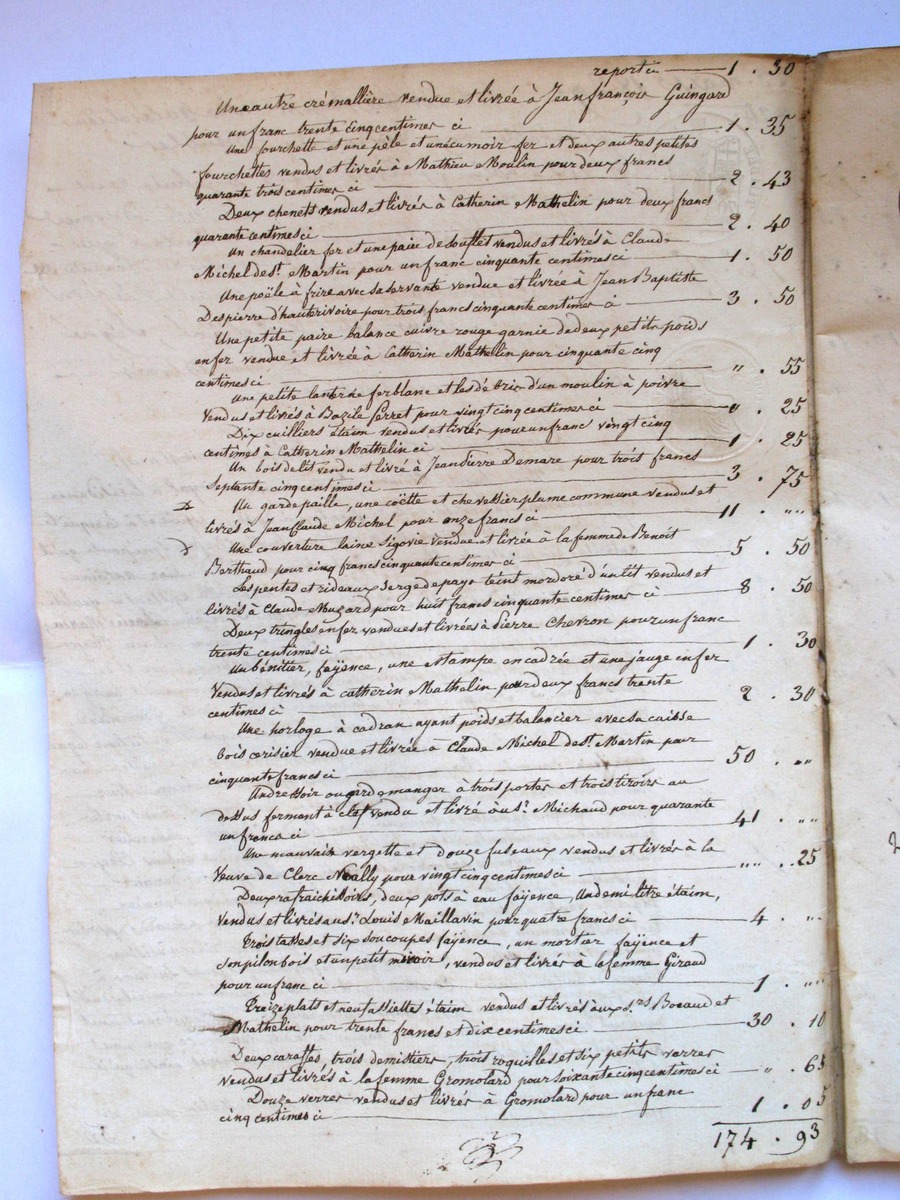 report ci 1 . 30
Une autre crémallière vendue et livrée à Jean françois Guingard
pour un franc trente cinq centimes ci 1 . 35
Une fourchette et une pèle et un écumoir fer et deux autres petites
fourchettes vendus et livrés à Mathieu Moulin pour deux francs
quarante trois centimes ci 2 . 43
Deux chenets vendus et livrés à Catherin Mathelin pour deux francs
quarante centimes ci 2 . 40
Un chandelier fer et une paire de soufflet vendus et livrés à Claude
Michel de St. Martin pour un franc cinquante centimes ci 1 . 50
Une poële à frire avec sa servante vendue et livrée à Jean Baptiste
Despierre d'hauterivoire pour trois francs cinquante centimes ci 3 . 50
Une petite paire balance cuivre rouge garnie de deux petits poids
en fer vendue et livrée à Catherin Mathelin pour cinquante cinq
centimes ci " . 55
Une petite lanterne fer blanc et les débris d'un moulin à poivre
vendus et livrés à Bazile Ferret pour vingt cinq centimes ci " . 25
Dix cuilliers étaim vendus et livrés pour un franc vingt cinq
centimes à Catherin Mathelin ci 1 . 25
Un bois de lit vendu et livré à Jean Pierre Demare pour trois francs
septante cinq centimes ci 3 . 75
Un garde paille, une coëtte et chevessier plume commune vendus et
livrés à Jean Claude Michel pour onze francs ci 11 . ""
Une couverture laine Sigovie vendue et livrée à la femme de Benoit
Berthaud pour cinq francs cinquante centimes ci 5 . 50
Les pentes et rideaux Serge de pays teint mordoré d'un lit vendus et
livrés à Claude Muzard pour huit francs cinquante centimes ci 8 . 50
Deux tringles en fer vendues et livrées à Pierre Chevron pour un franc
trente centimes ci 1 . 30
Un bénitier, faÿence, une estampe encadrée et une jauge en fer
vendus et livrés à catherin Mathelin pour deux francs trente
centimes ci 2 . 30
Une horloge à cadran ayant poids et balancier avec sa caisse
bois cerisier vendue et livrée à Claude Michel de St. Martin pour
cinquante francs ci 50 . ""
Un dressoir ou gardemanger à trois portes et trois tiroirs au
dessus fermant à clef vendu et livré au Sr. Michaud pour quarante
un francs ci 41 . ""
Une mauvaise vergette et douze fuseaux vendus et livrés à la
Veuve de Clerc Noally pour vingt cinq centimes ci "" . 25
Deux rafraichissoirs, deux pots à eau faÿence, Un demi litre étaim,
vendus et livrés au Sr. Louis Maillavin pour quatre francs ci 4 . ""
Trois tasses et six soucoupes faÿence, un mortier faÿence et
son pilon bois et un petit miroir, vendus et livrés à la femme Giraud
pour un franc ci 1 . ""
Treize plats et neuf assiettes étaim vendus et livrés aux Srs Boeaud et
Mathelin pour trente francs et dix centimes ci 30 . 10
Deux caraffes, trois demittiers, trois roquilles et six petits verres
vendus et livrés à la femme Gromolard pour soixante cinq centimes ci " . 65
Douze verres vendus et livrés à Gromolard pour un franc
cinq centimes ci 1 . 05
174 . 93